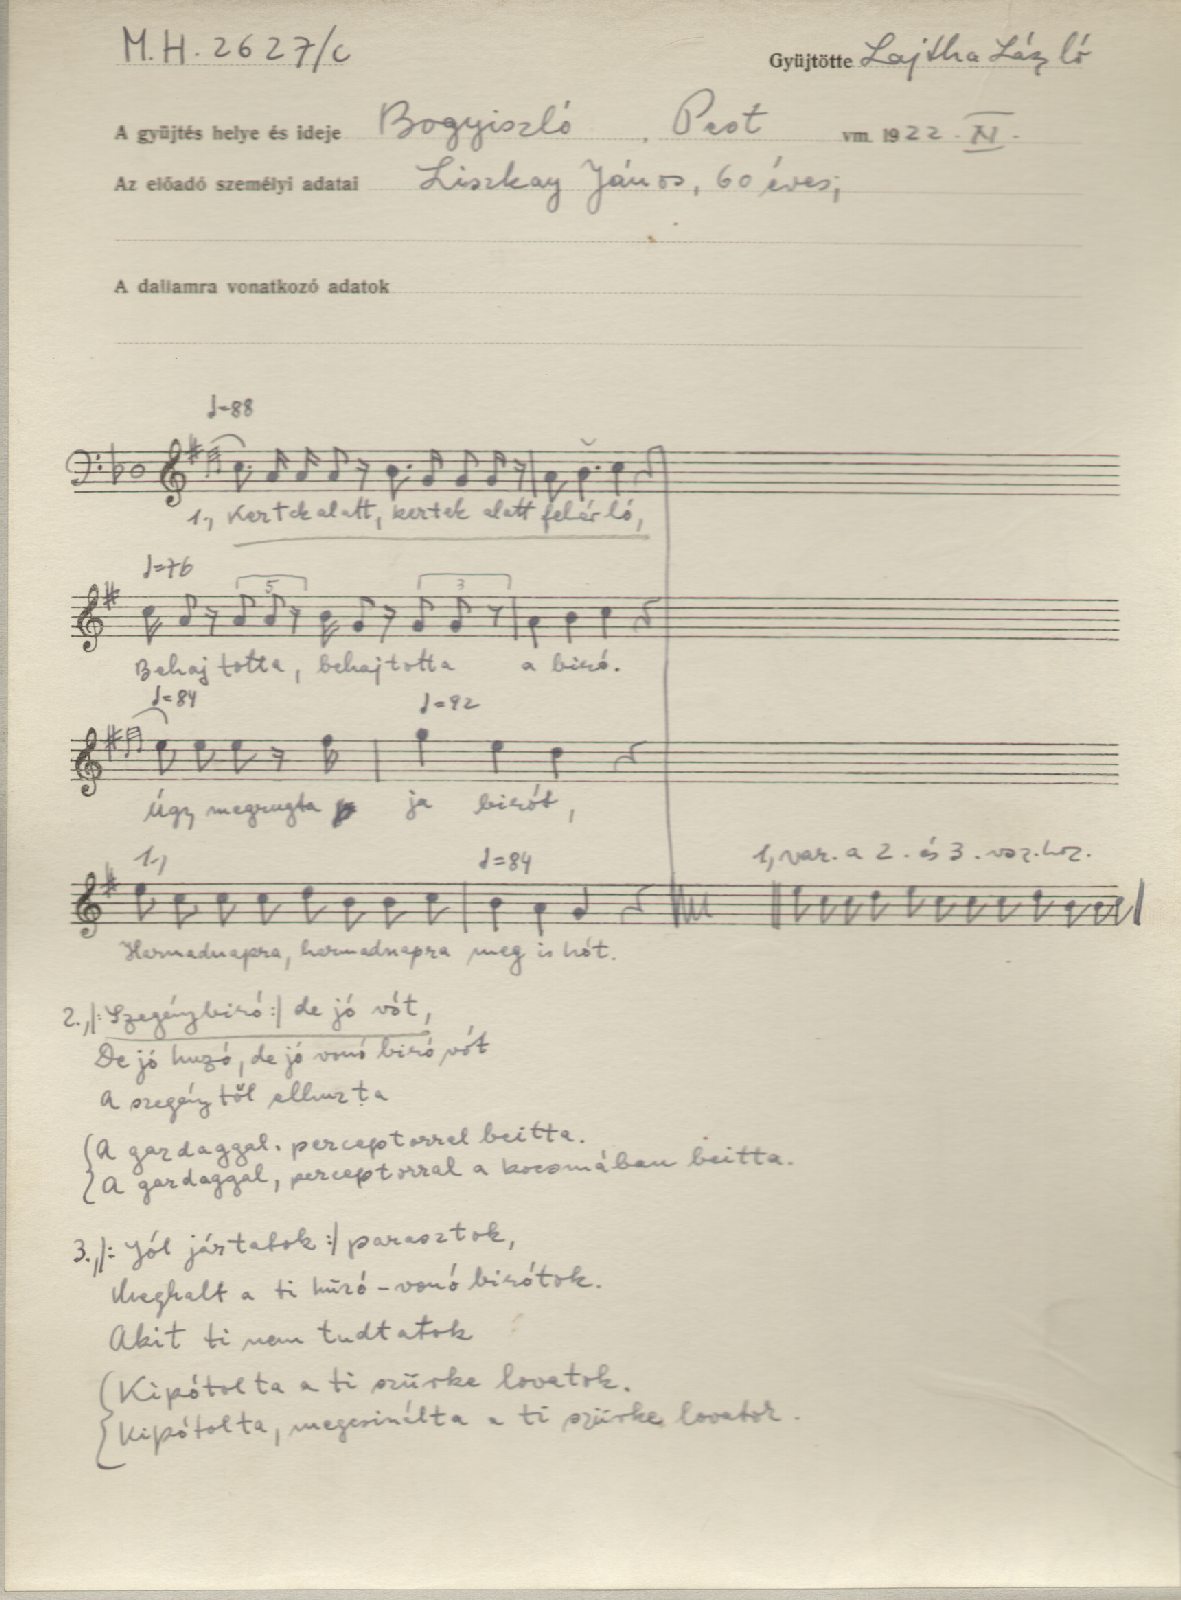 M.H. 2627/c
Gyüjtötte Lajtha László
A gyüjtés helye és ideje Bogyiszló, Pest vm. 1922. XI.
Az előadó személyi adatai Liszkay János, 60 éves;
A dallamra vonatkozó adatok
♩=88
1., Kertek alatt, kertek alatt fehér ló,
♩=76
5 3
Behajtotta, behajtotta a biró.
♩=84 ♩=92
Úgy megrugta ja birót,
1., ♩=84 1, var. a 2. és 3. vsz.hoz.
Harmadnapra, harmadnapra meg is hót.
2., |: Szegénybiró :| de jó vót,
De jó huzó, de jó vonó biró vót
A szegénytől elhuzta
A gazdaggal, perceptorrel beitta.
A gazdaggal, perceptorral a kocsmában beitta.
3., |: Jól jártatok :| parasztok,
Meghalt a ti húzó-vonó birótok.
Akit ti nem tudtatok
Kipótolta a ti szürke lovatok.
Kipótolta, megcsinálta a ti szürke lovatok.